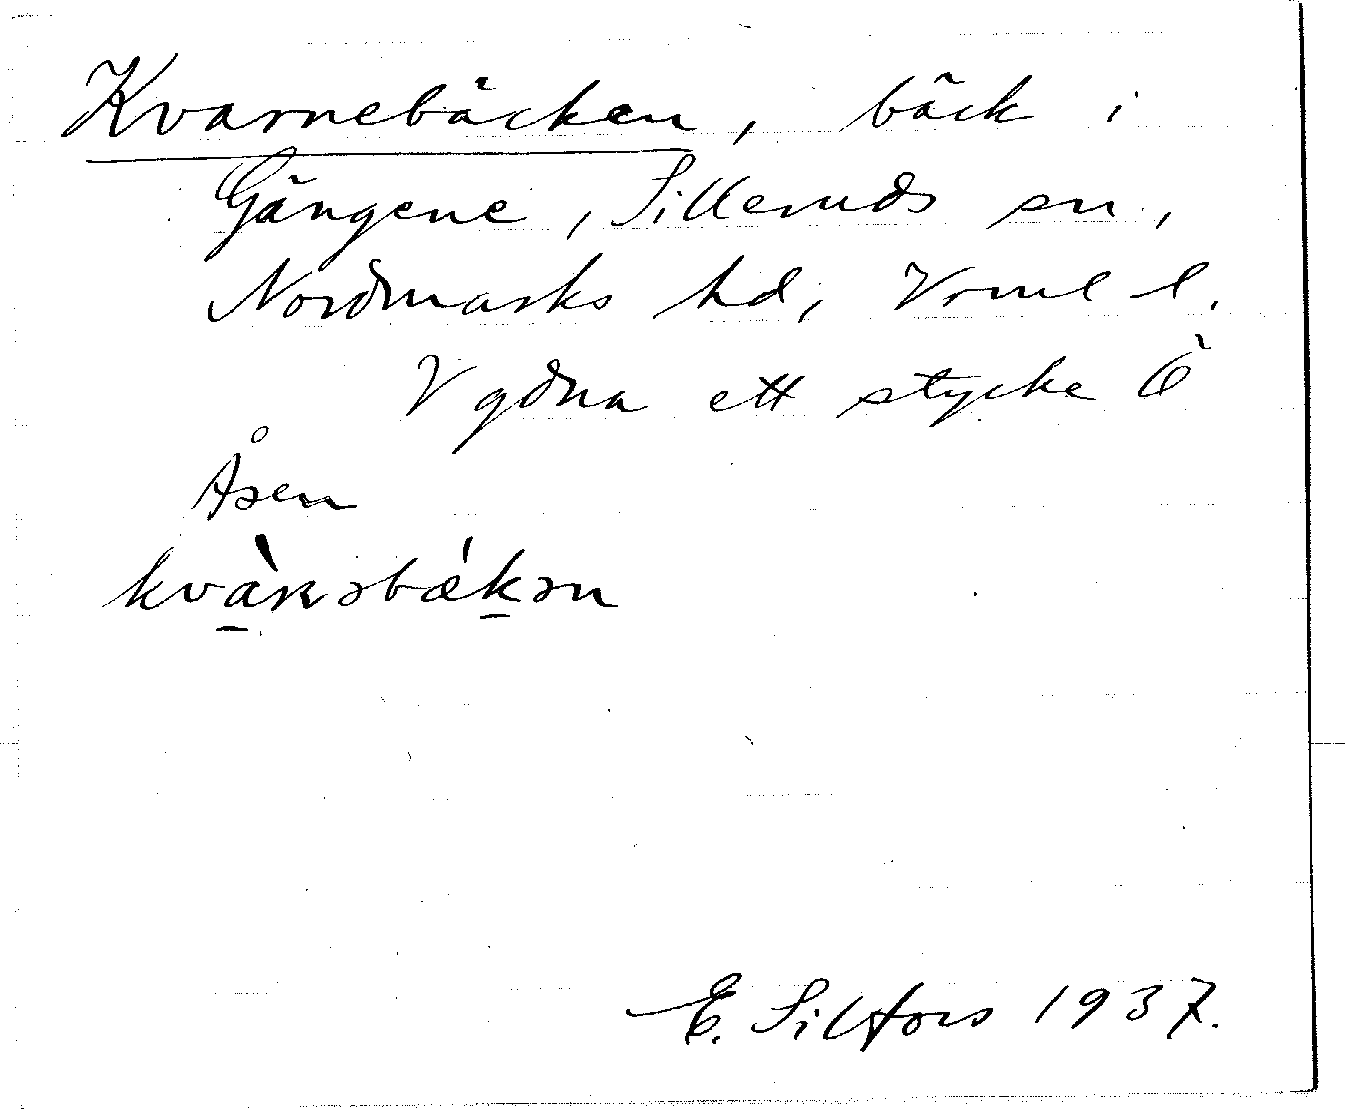 Kvarnebäcken, bäck i
Gängene, Silleruds sn,
Nordmarks hd, Vrml l.
V gdna ett stycke Ö
Åsen
kvà̱ɳəbǽḵən
E. Silfors 1937.